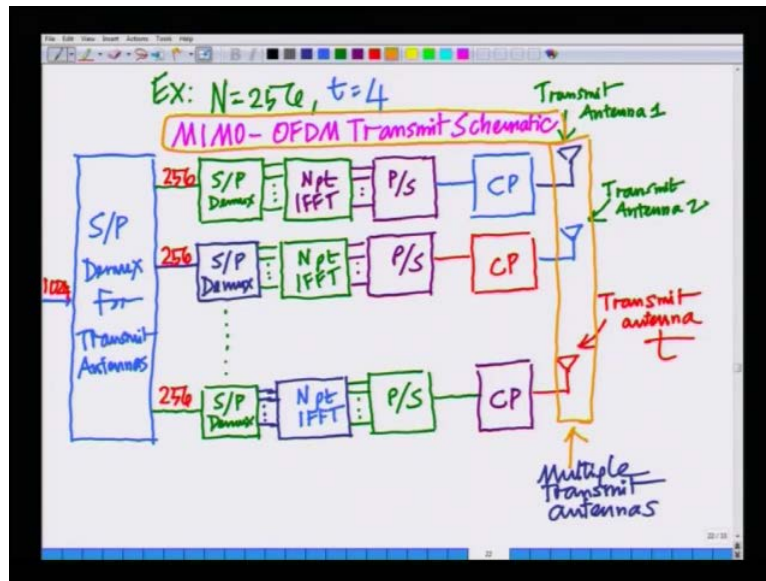 File Edit View Insert Actions Tools Help
Ex: N=256, t=4
MIMO-OFDM Transmit Schematic
Transmit
Antenna 1
Transmit
Antenna 2
Transmit
antenna
t
1024
S/P
Demux
For
Transmit
Antennas
256
S/P
Demux
N pt
IFFT
P/S
CP
256
S/P
Demux
N pt
IFFT
P/S
CP
256
S/P
Demux
N pt
IFFT
P/S
CP
Multiple
Transmit
antennas
22